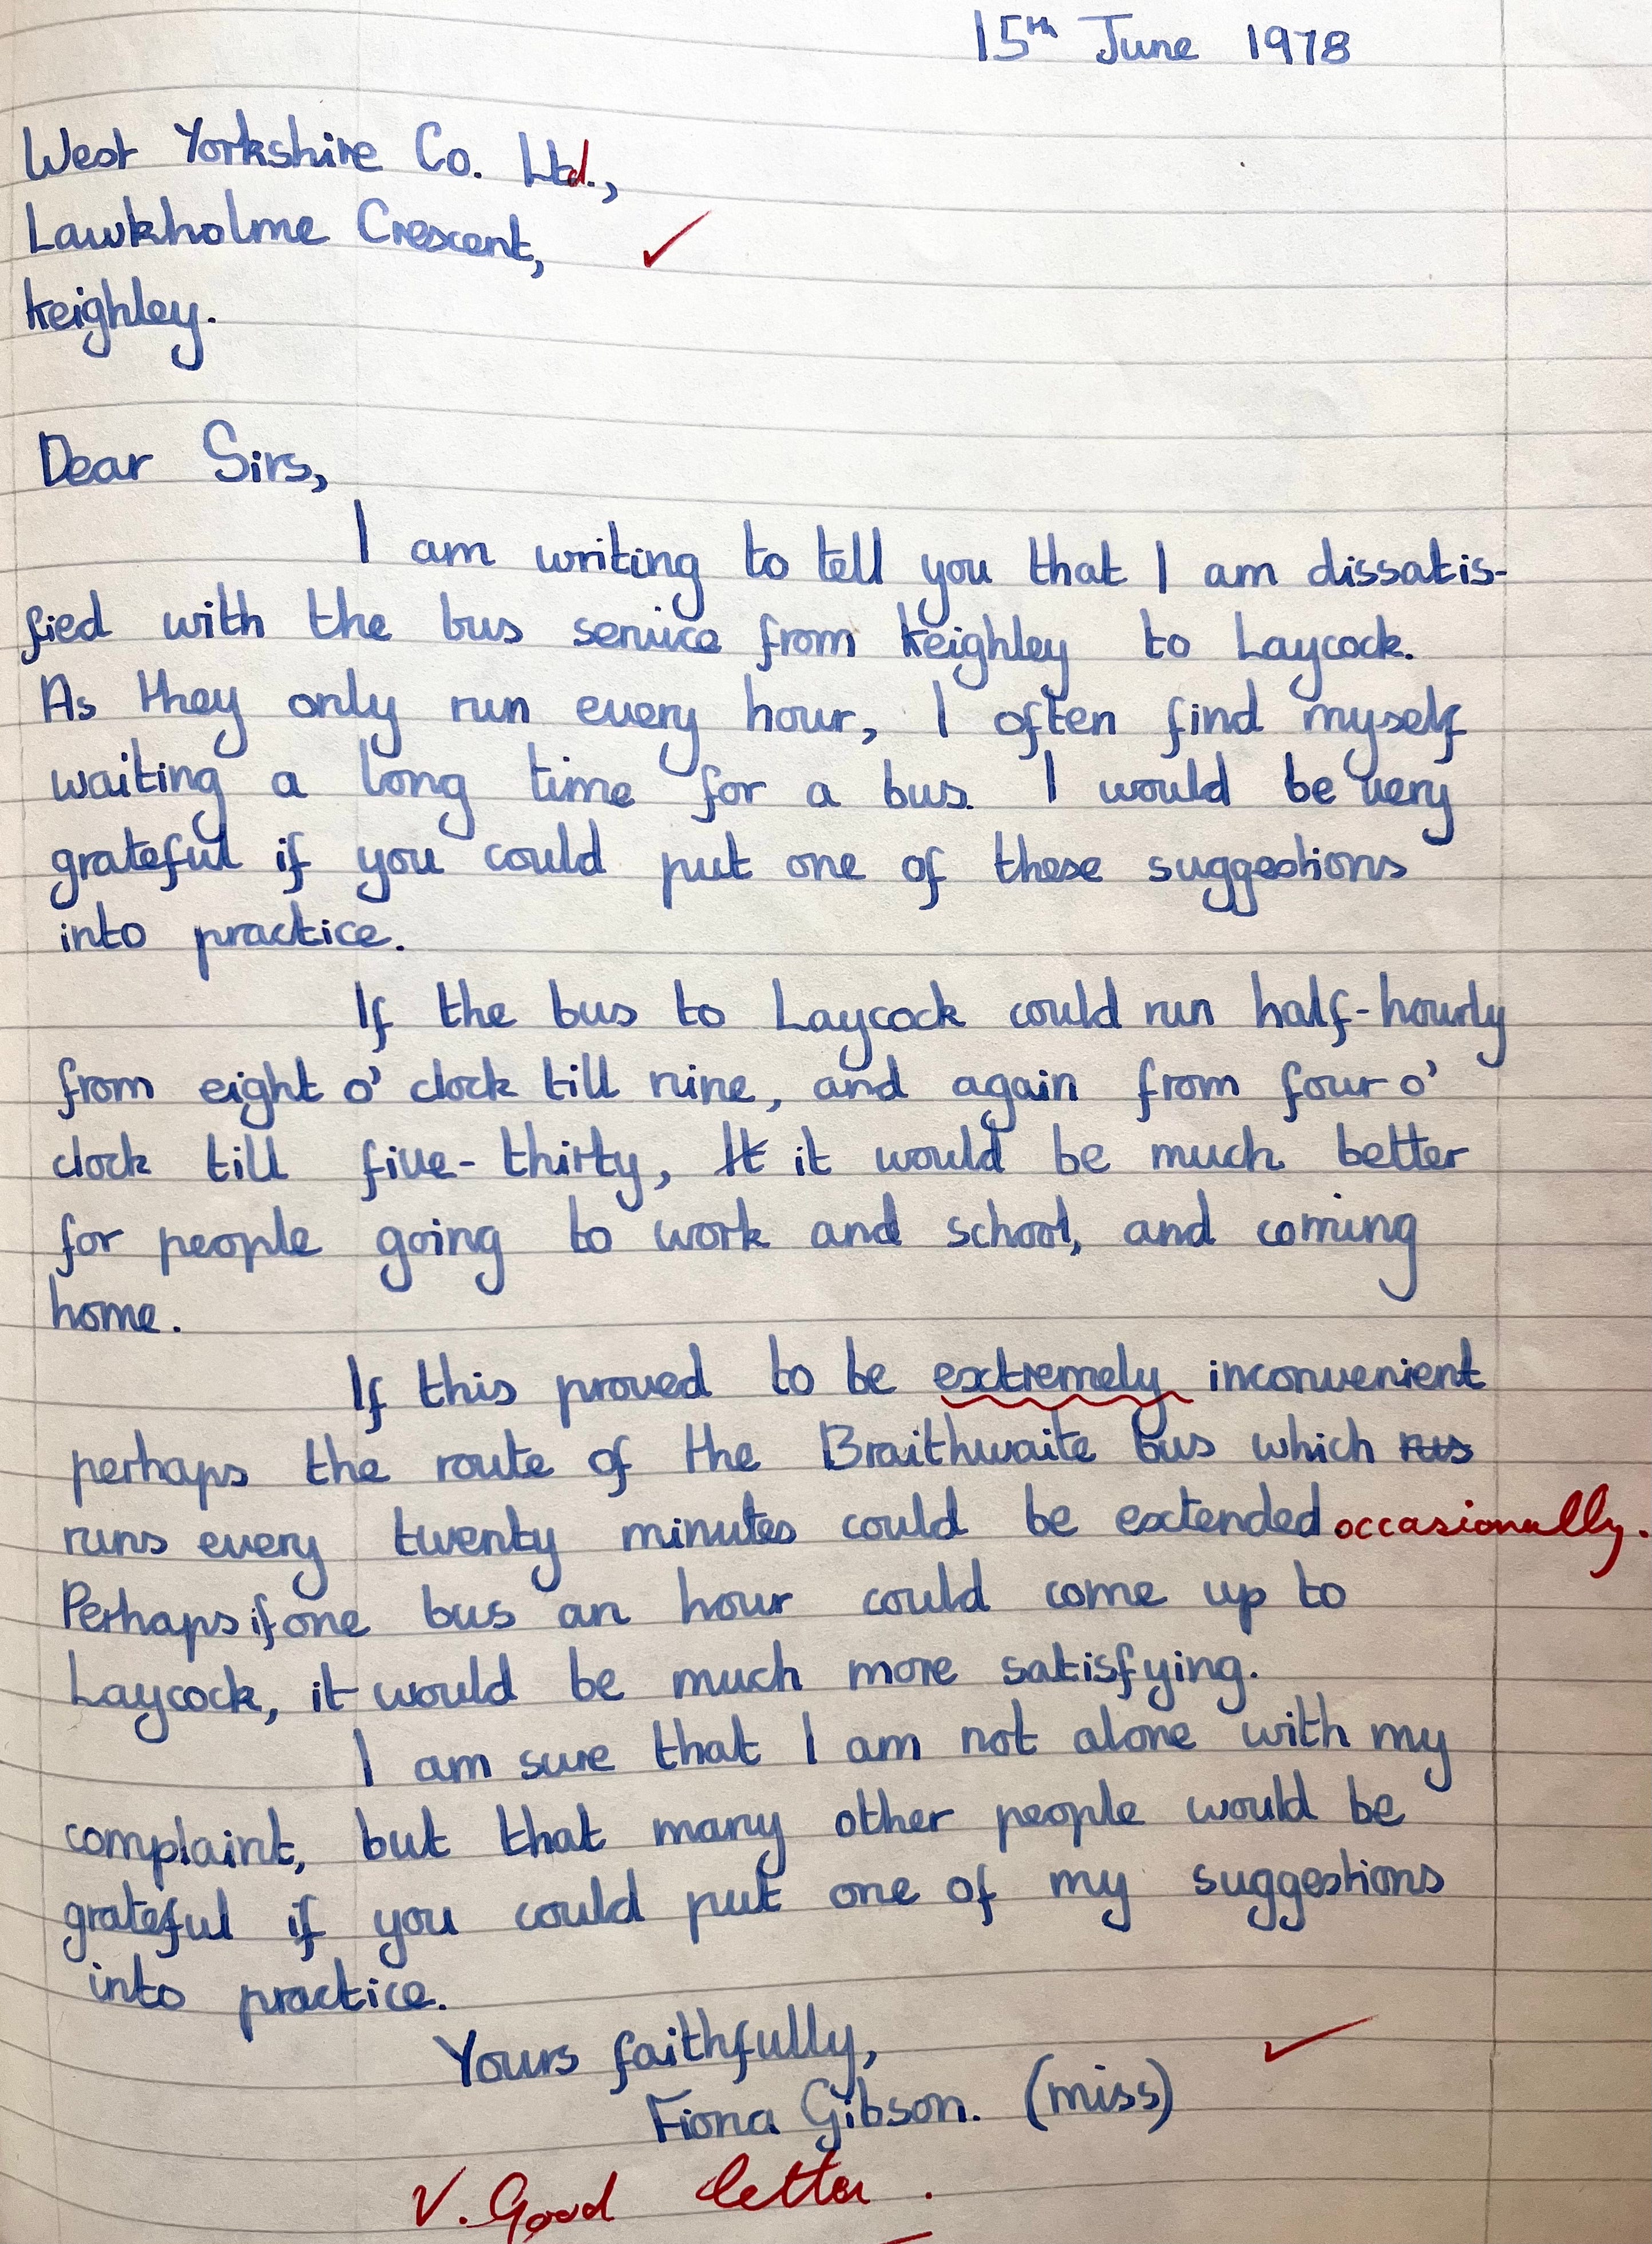 15th June 1978
West Yorkshire Co. Ltd.,
Lawkholme Crescent,
Keighley.
Dear Sirs,
I am writing to tell you that I am dissatis-
fied with the bus service from Keighley to Laycock.
As they only run every hour, I often find myself
waiting a long time for a bus. I would be very
grateful if you could put one of these suggestions
into practice.
If the bus to Laycock could run half-hourly
from eight o' clock till nine, and again from four o'
clock till five-thirty, It it would be much better
for people going to work and school, and coming
home.
If this proved to be extremely inconvenient
perhaps the route of the Braithwaite bus which rus
runs every twenty minutes could be extended. occasionally.
Perhaps if one bus an hour could come up to
Laycock, it would be much more satisfying.
I am sure that I am not alone with my
complaint, but that many other people would be
grateful if you could put one of my suggestions
into practice.
Yours faithfully,
Fiona Gibson. (miss)
V. Good letter.